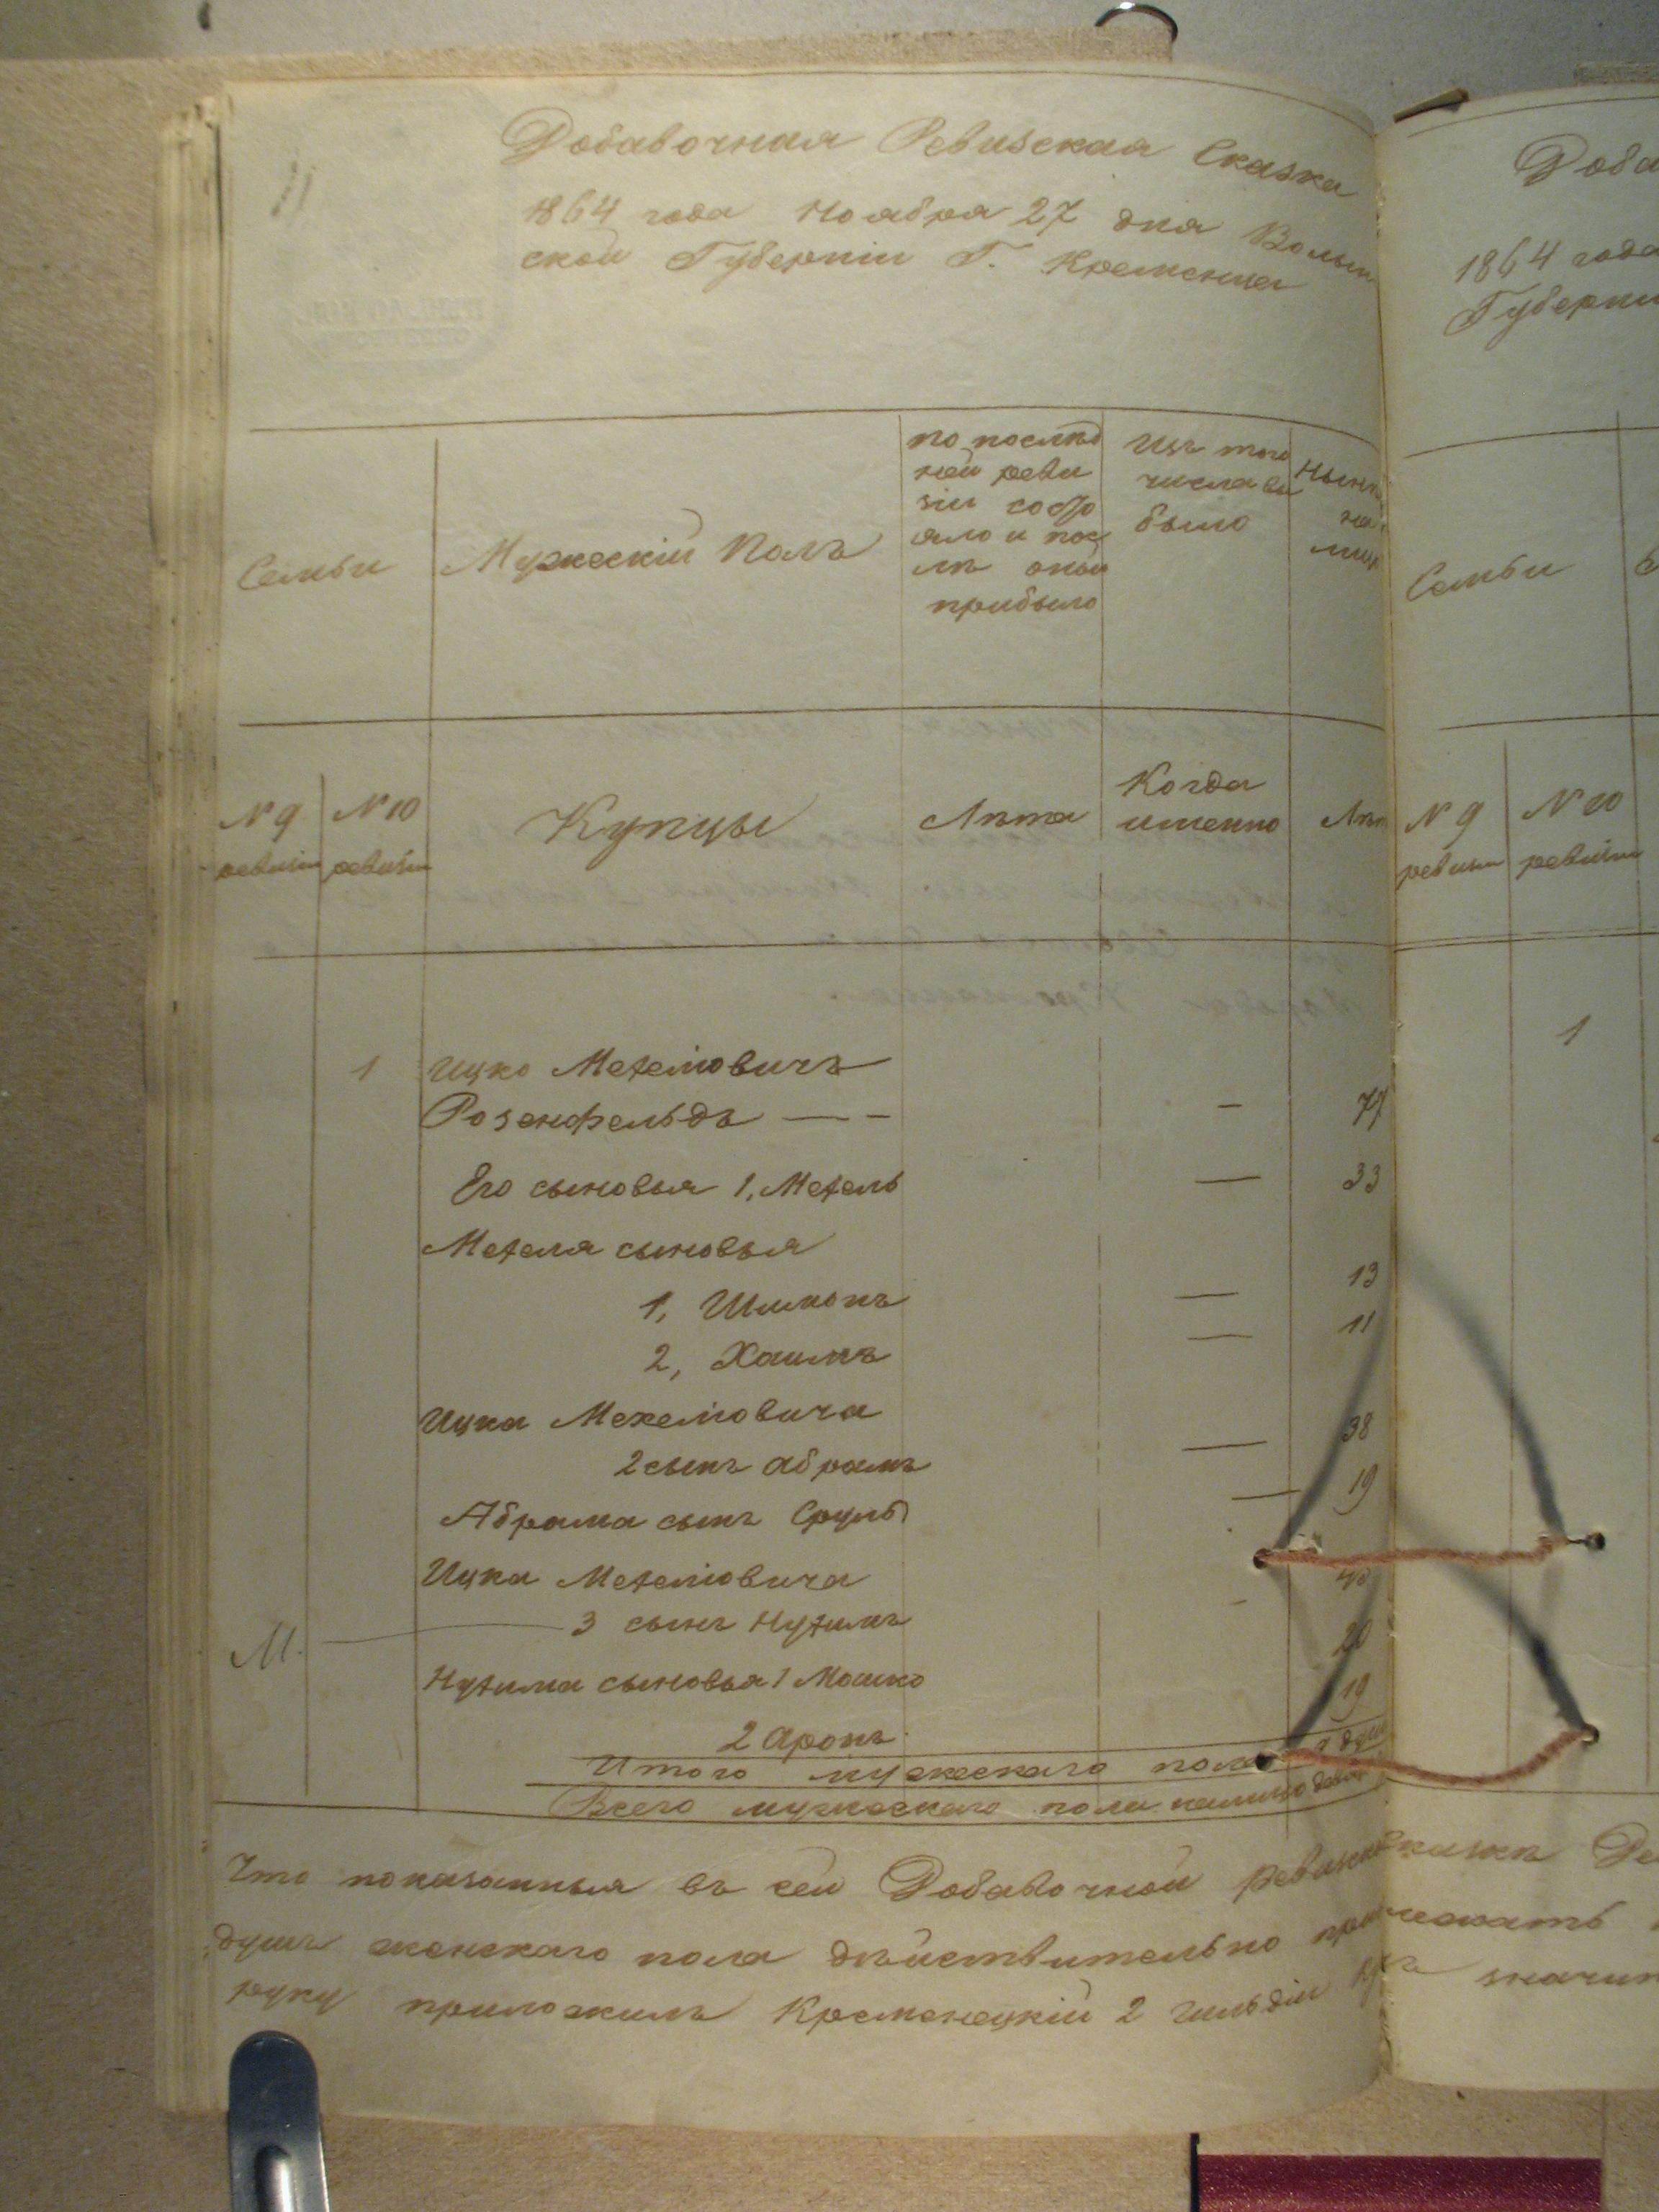 Добавочная Ревизская Сказка
1864 года Ноября 27 дня Волын
ской Губерніи Г. Кременца
Семьи
Мужескій Полъ
по послѣд
ней реви
зіи состо
яло и пос
лѣ оной
прибыло
Изъ того
числа вы
было
Нынѣ
на
лицо
№ 9
ревизіи
№ 10
ревизіи
Купцы
Лѣта
Когда
именно
Лѣт
1 Ицко Мехелiовичъ
Розенфельдъ — — – 77
Его сыновья 1, Мехель — 33
Мехеля сыновья
1, Шимонъ — 13
2, Хаимъ — 11
Ицка Мехелiовича
2 сынъ Абрамъ — 38
Абрама сынъ Сруль — 19
Ицка Мехелiовича
М. — 3 сынъ Нухимъ –
Нухима сыновья 1 Мошко 20
2 Аронъ 19
Итого мужескаго пола душ
Всего мужескаго пола налицо
Что показанныя въ сей Добавочной Ревизкой
душъ женскаго пола дѣйствительно
руку приложилъ Кременецкій 2 гильдіи
Доба
1864 года
Губерни
Семьи
№ 9
ревизіи
№ 10
ревизіи
1
сказкѣ
значит